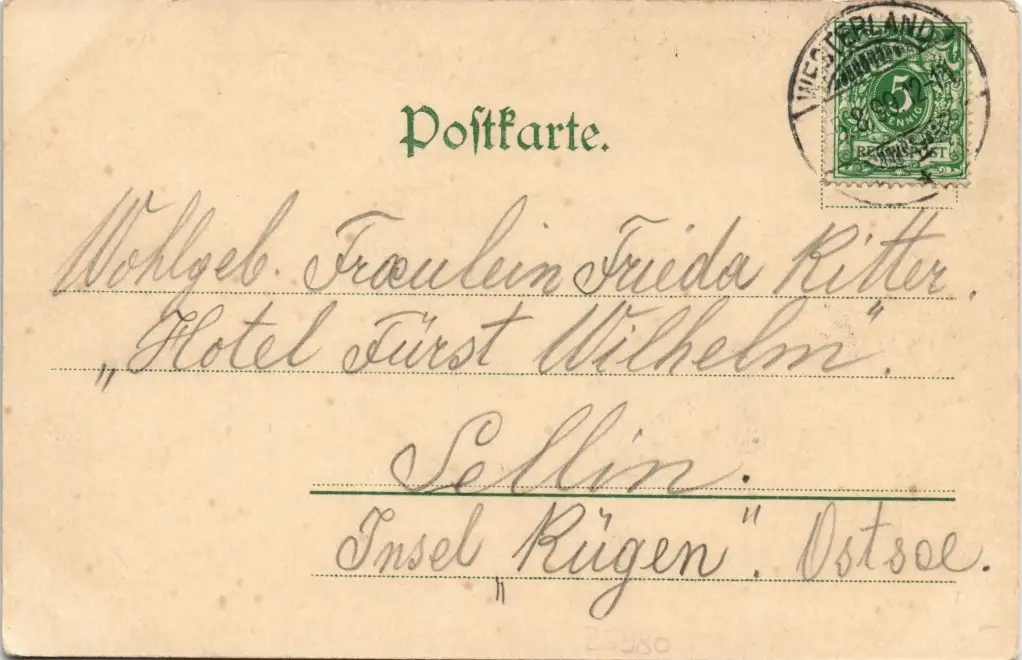 WESTERLAND
5
PFENNIG
REICHSPOST
Postkarte.
Wohlgeb. Fraeulein Frieda Ritter.
„Hotel Fürst Wilhelm“.
Sellin.
Insel „Rügen“. Ostsee.